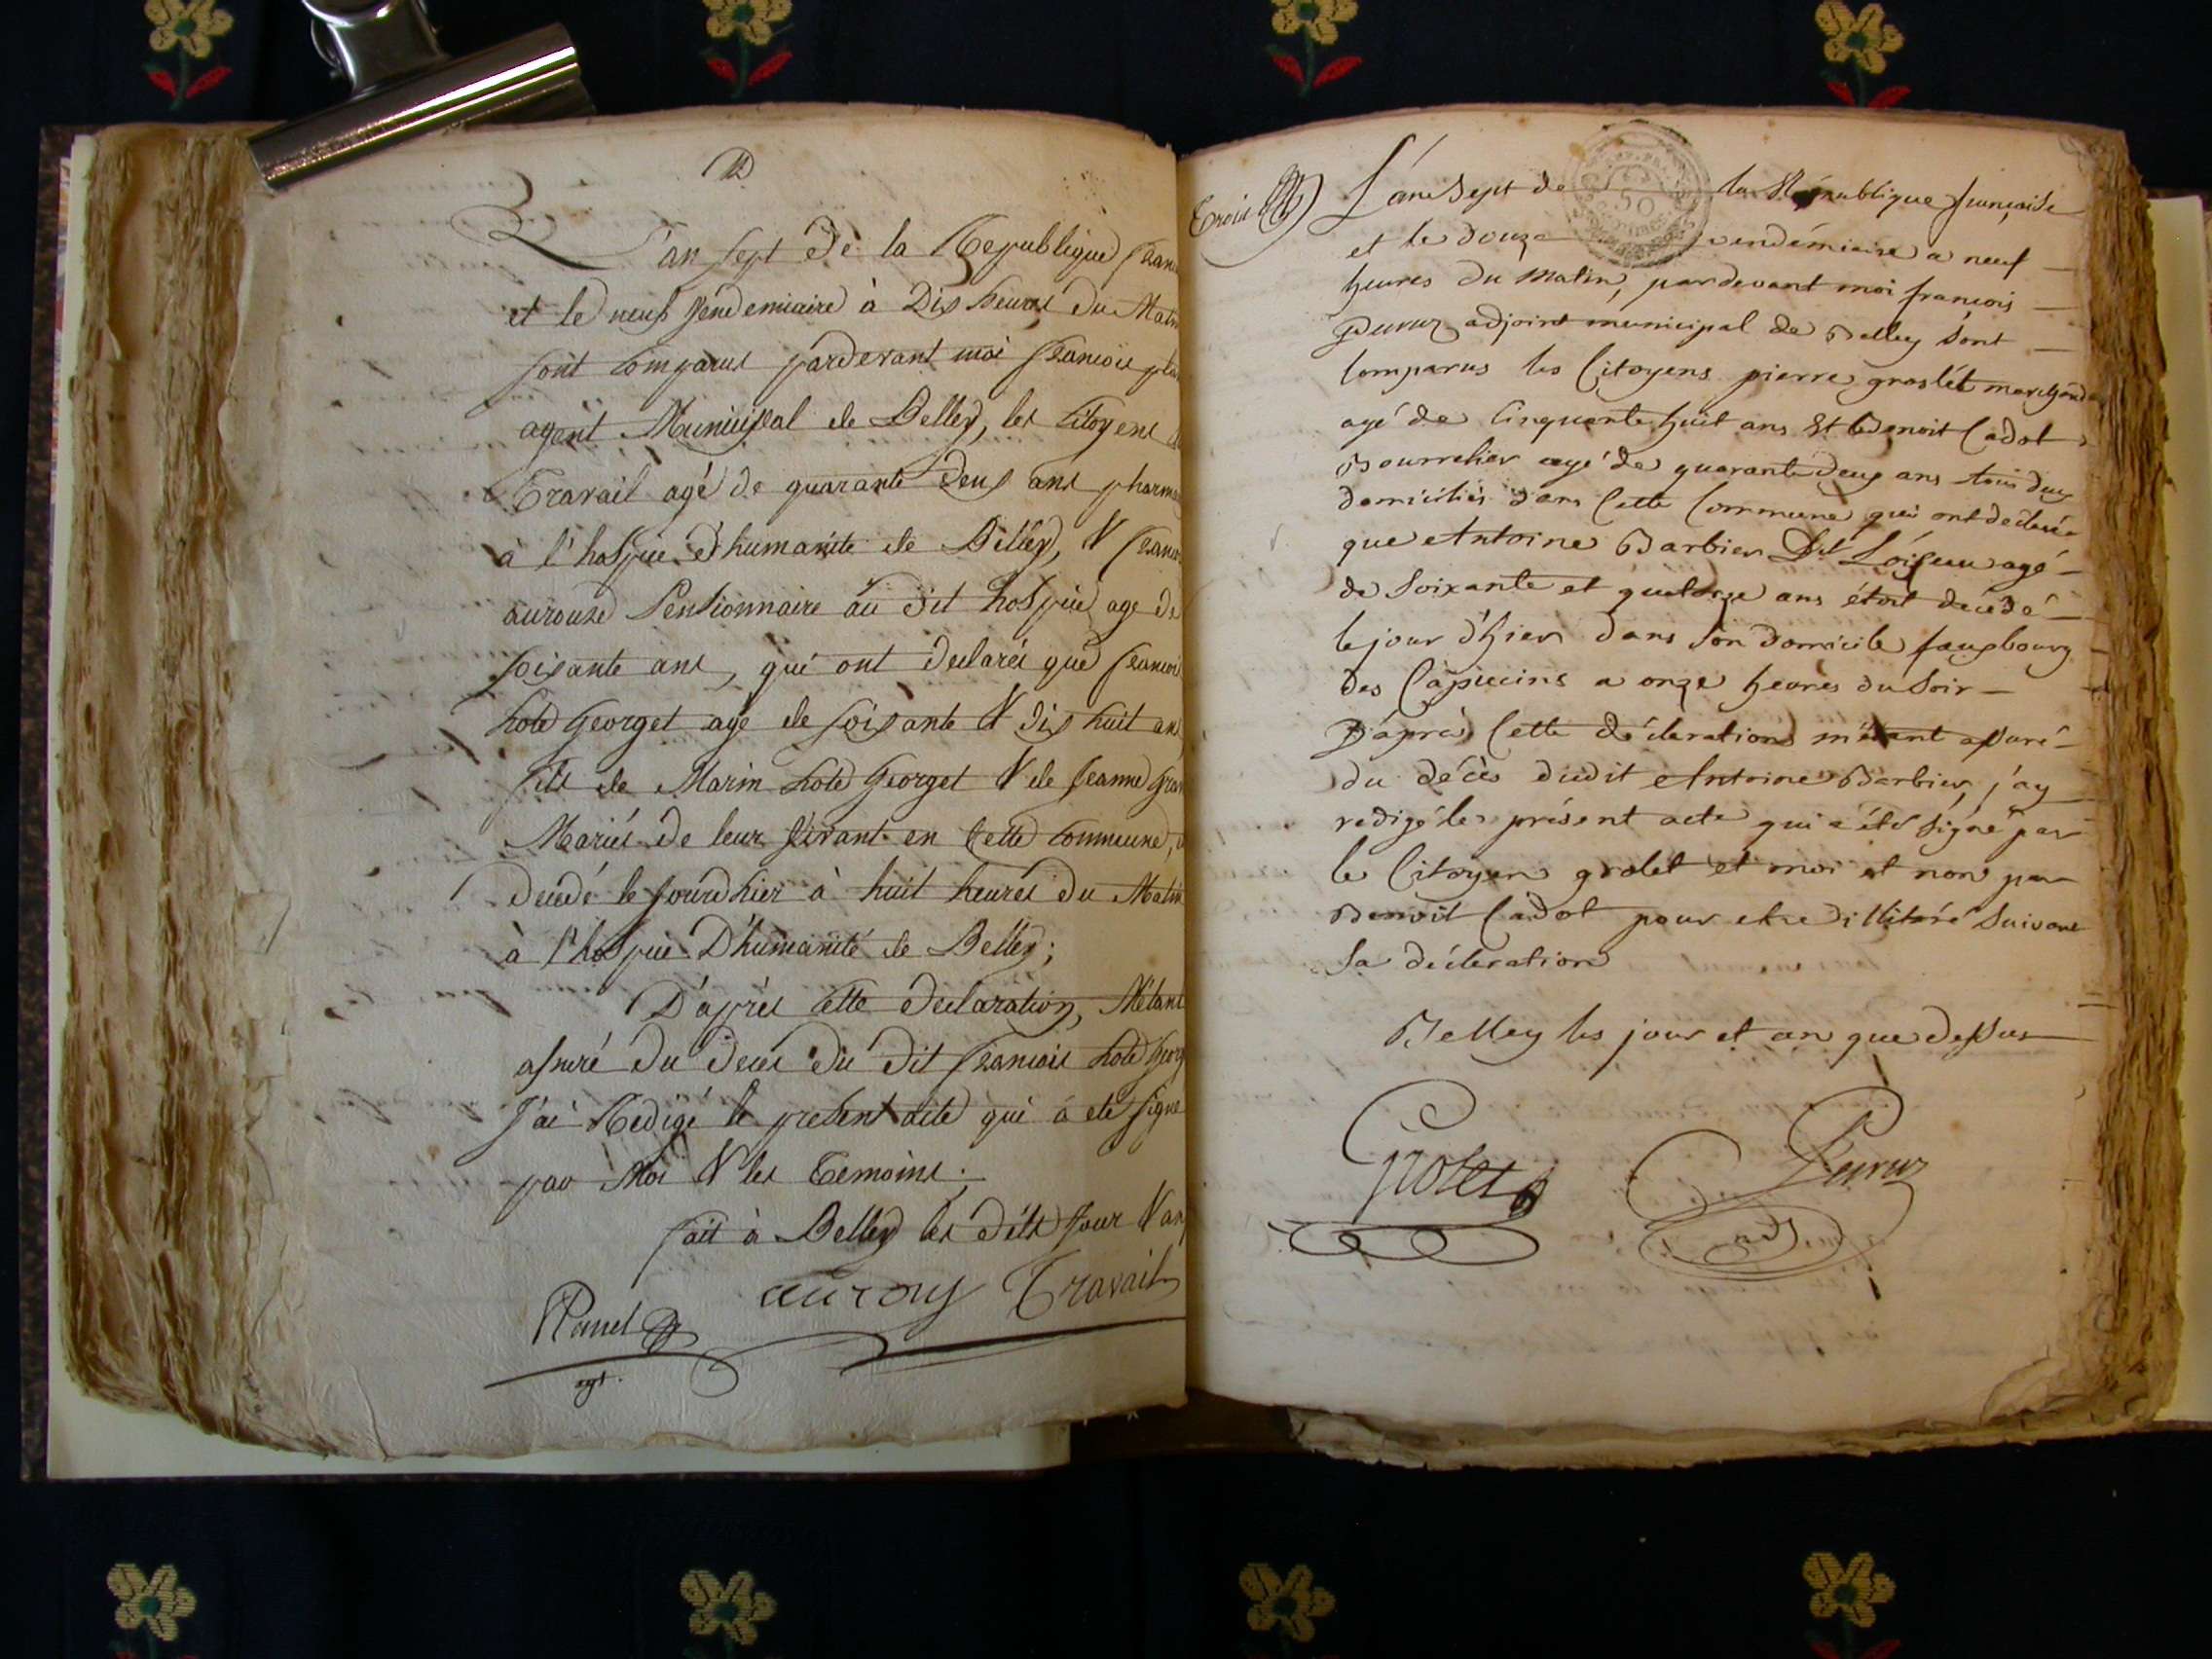 L'an sept de la Republique fran
et le neuf vendemiaire à dix heures du Matin
sont comparus pardevant moi francois
agent Municipal de Belley, les citoyens
Travail agé de quarante deux ans pharma
à l'hospice d'humanité de Belley, & franc
aurouze Pensionnaire au dit hospice age de
soixante ans, qui ont declarés que francois
hote Georget age de soixante & dix huit an
fils de Marin hote Georget & de Jeanne Gra
Mariés de leur vivant en cette commune,
decedé le jourdhier à huit heures du Matin
à l'hospice D'humanité de Belley;
D'après cette declaration, M'étant
assuré du deces du dit francois hote Georg
J'ai Redigé le present acte qui a eté signé
par Moi & les Temoins.
fait à Belley les dits jour & an
auroux Travail
agt.
Trois
L'an sept de la République française
50
et le douze vendémiaire a neuf
heures du matin, pardevant moi francois
Peruz adjoint municipal de Belley sont
comparus les Citoyens pierre groslet marchand
agé de Cinquante huit ans et Benoit Cadot
Bourrelier agé de quarante deux ans tous deux
domiciliés dans Cette Commune qui ont déclaré
que Antoine Barbier dit Loiseau agé
de soixante et quatorze ans étoit décédé
le jour d'hier dans son domicile fauxbourg
des Capucins a onze heures du soir
D'après Cette déclaration m'étant assuré
du décès dudit Antoine Barbier, j'ay
redigé le présent acte qui a été signé par
le Citoyen grolet et moi et non par
Benoit Cadot pour etre illitéré suivant
sa déclaration
Belley les jour et an que dessus
Grolet Peruz
adj